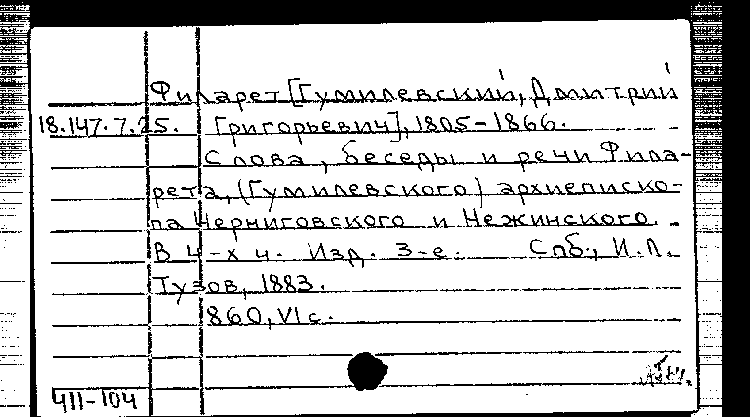 Филарет [Гумилевский, Дмитрий
18.147.7.25. Григорьевич], 1805-1866.
Слова, беседы и речи Фила-
рета, (Гумилевского) архиеписко-
па Черниговского и Нежинского. -
В 4-х ч. Изд. 3-е. Спб., И.Л.
Тузов, 1883.
860, VI с.
411-104